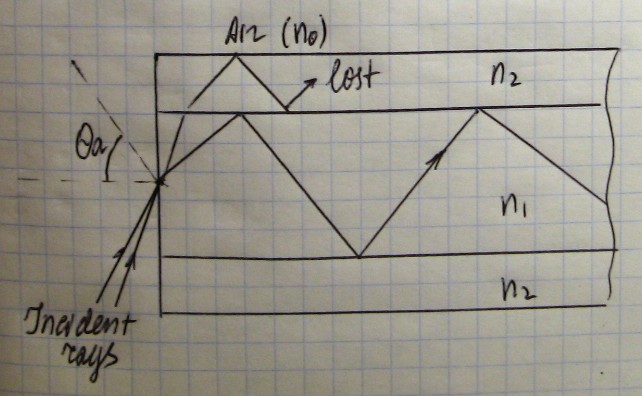 Air (n₀)
lost
n₂
θa
n₁
n₂
Incident
rays